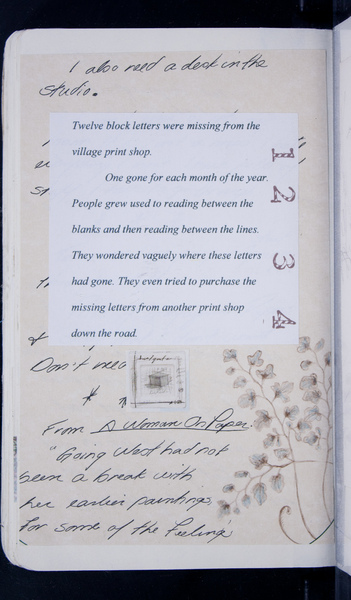 I also need a desk in the
studio.
Twelve block letters were missing from the
village print shop.
One gone for each month of the year.
People grew used to reading between the
blanks and then reading between the lines.
They wondered vaguely where these letters
had gone. They even tried to purchase the
missing letters from another print shop
down the road.
1 2 3 4
Don't need
From A Woman On Paper.
"Going West had not
been a break with
her earlier paintings,
for some of the feeling